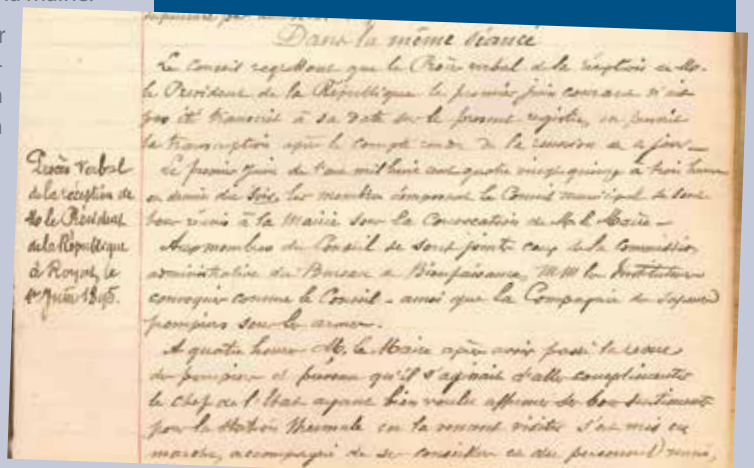 Dans la même séance
Le Conseil regrettant que le Procès verbal de la réception de M.
le Président de la République le premier juin courant n'ait
pas été transcrit à sa date sur le présent registre, en permet
la transcription après le compte rendu de la réunion de ce jour —
Procès Verbal
de la réception de
M. le Président
de la République
à Royat, le
1er Juin 1895.
Le premier Juin de l'an mil huit cent quatre vingt quinze à trois heures
et demie du soir, les membres composant le Conseil municipal se sont
tous réunis à la Mairie sous la Convocation de M. le Maire —
Aux membres du Conseil se sont joints ceux de la Commission
administrative du Bureau de Bienfaisance, MM les Instituteurs
convoqués comme le Conseil - ainsi que la Compagnie de Sapeurs
pompiers sous les armes.
A quatre heures M. le Maire après avoir passé la revue
des pompiers et qu'il s'agissait d'aller complimenter
le Chef de l'Etat ayant bien voulu affirmer ses bons sentiments
pour la Station Thermale en la venant visiter s'est mis en
marche, accompagné de ses conseillers et du personnel réuni,